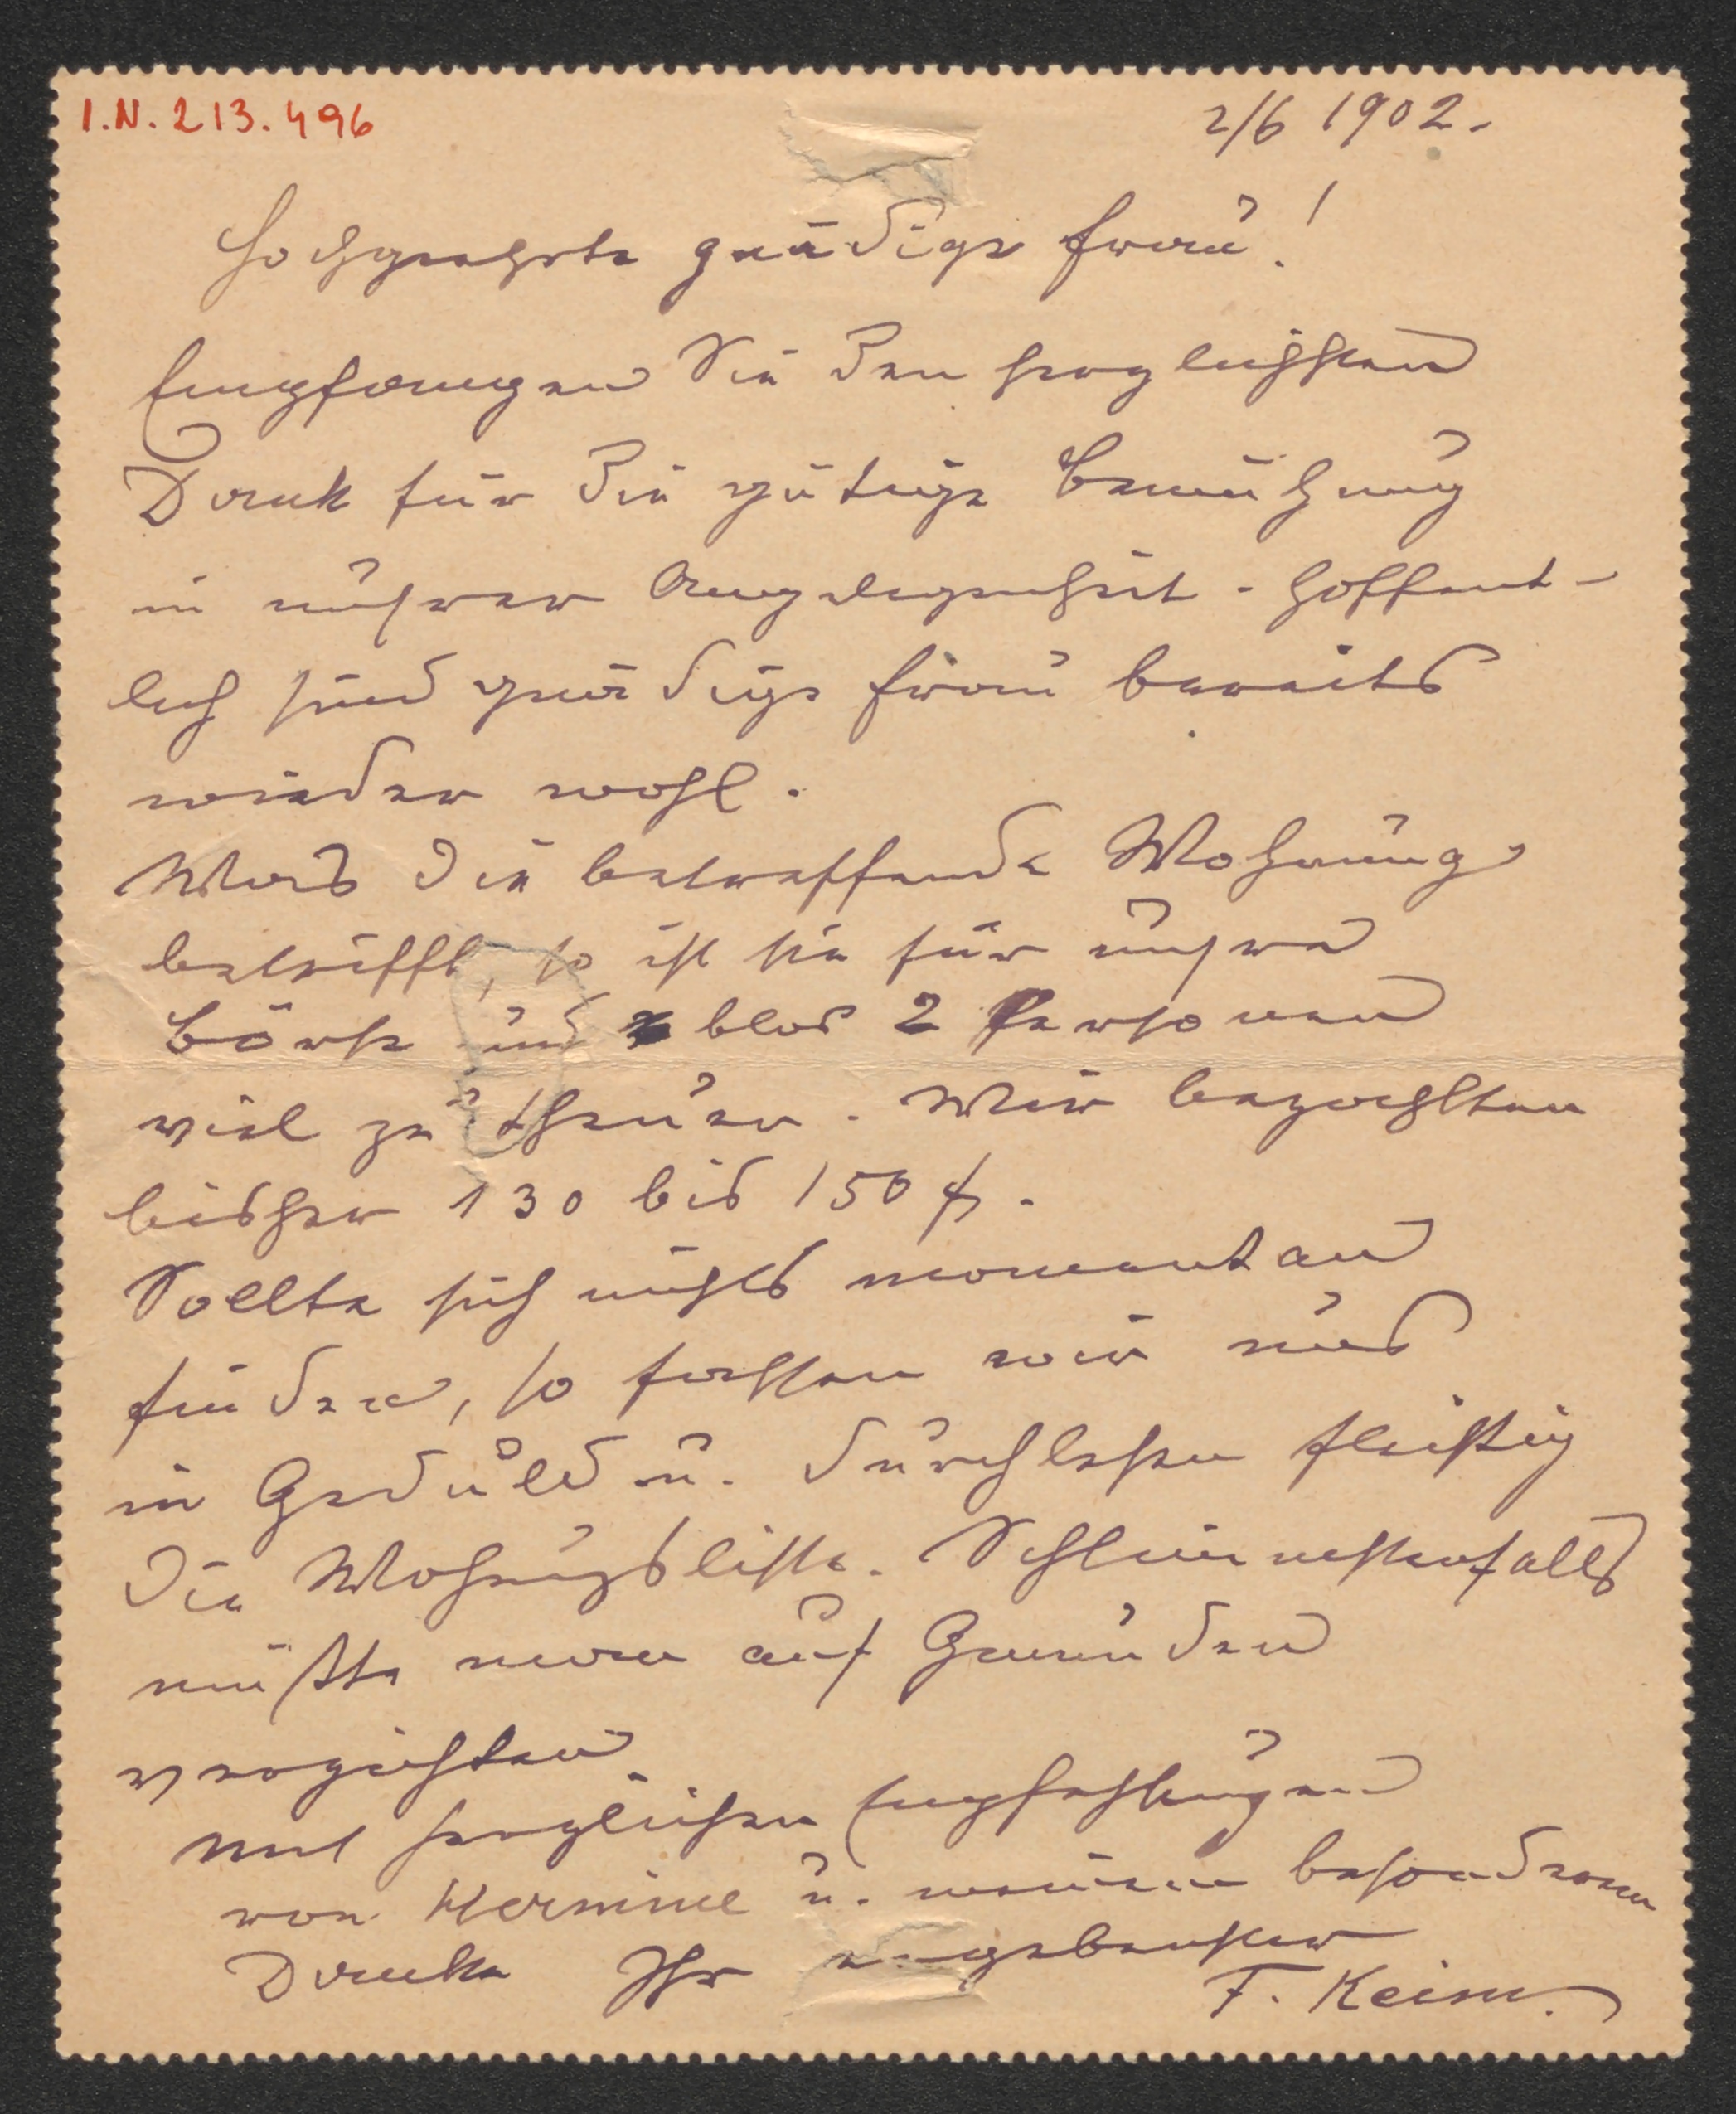 I.N. 213.496
2/6 1902.
Hochgeehrte gnädige Frau!
Empfangen Sie den herzlichsten
Dank für die gütige Bemühung
in unsrer Angelegenheit. Hoffent-
lich sind gnädige Frau bereits
wieder wohl.
Was die betreffende Wohnung
betrifft, so ist sie für unsre
Börse und blos 2 Personen
viel zu theuer. Wir bezahlten
bisher 130 bis 150 f.
Sollte sich nichts momentan
finden, so fassen wir uns
in Geduld u. durchlesen fleißig
die Wohnungsliste. Schlimmstenfalls
müßte man auf Gmunden
verzichten.
Mit herzlichen Empfehlungen
von Hermine u. meinem besonderen
Danke Ihr ergebenster
F. Keim.